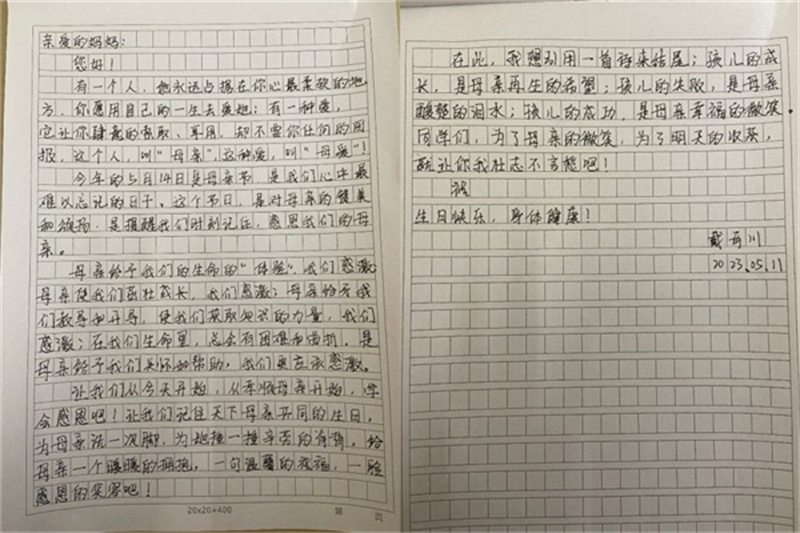 亲爱的妈妈：
您好！
有一个人，她永远占据在你心最柔软的地
方，你愿用自己的一生去爱她；有一种爱，
它让你肆意的索取、享用，却不要你任何的回
报，这个人，叫“母亲”，这种爱，叫“母爱”！
今年的5月14日是母亲节，是我们心中最
难以忘记的日子。这个节日，是对母亲的赞美
和颂扬，是提醒我们时刻记住，感恩我们的母
亲。
母亲给予我们的生命的“体验”，我们感激；
母亲使我们茁壮成长，我们感激；母亲给予我
们教导和开导，使我们获取知识的力量，我们
感激；在我们生命里，总会有困难和挫折，是
母亲给予我们关怀和帮助，我们更应该感激。
让我们从今天开始，从孝顺母亲开始，学
会感恩吧！让我们记住天下母亲共同的生日，
为母亲洗一次脚，为她捶一捶辛劳的脊背，给
母亲一个暖暖的拥抱，一句温馨的祝福，一脸
感恩的笑容吧！
20×20=400
第 页
在此，我想引用一首诗来结尾；孩儿的成
长，是母亲再生的希望；孩儿的失败，是母亲
酸楚的泪水；孩儿的成功，是母亲幸福的微笑
同学们，为了母亲的微笑，为了明天的收获，
就让你我壮志不言愁吧！
祝
生日快乐，身体健康！
川
2023.05.11